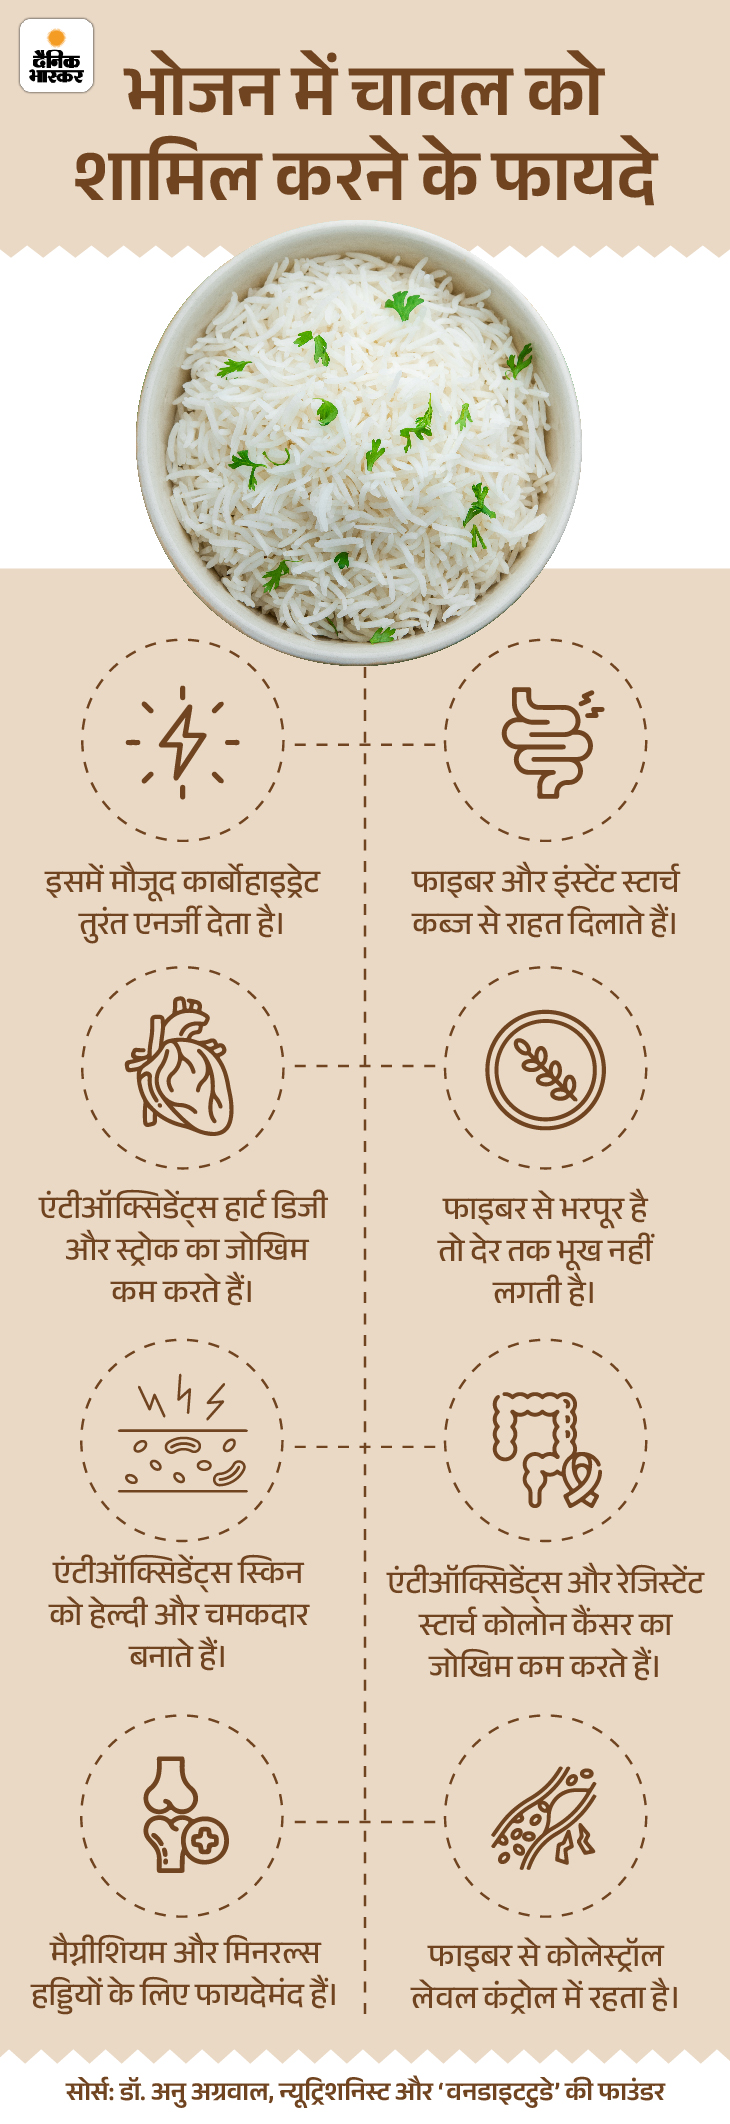 दैनिक
भास्कर
भोजन में चावल को
शामिल करने के फायदे
इसमें मौजूद कार्बोहाइड्रेट
तुरंत एनर्जी देता है।
फाइबर और इंस्टेंट स्टार्च
कब्ज से राहत दिलाते हैं।
एंटीऑक्सिडेंट्स हार्ट डिजी
और स्ट्रोक का जोखिम
कम करते हैं।
फाइबर से भरपूर है
तो देर तक भूख नहीं
लगती है।
एंटीऑक्सिडेंट्स स्किन
को हेल्दी और चमकदार
बनाते हैं।
एंटीऑक्सिडेंट्स और रेजिस्टेंट
स्टार्च कोलोन कैंसर का
जोखिम कम करते हैं।
मैग्नीशियम और मिनरल्स
हड्डियों के लिए फायदेमंद हैं।
फाइबर से कोलेस्ट्रॉल
लेवल कंट्रोल में रहता है।
सोर्स: डॉ. अनु अग्रवाल, न्यूट्रिशनिस्ट और ‘वनडाइटटुडे’ की फाउंडर